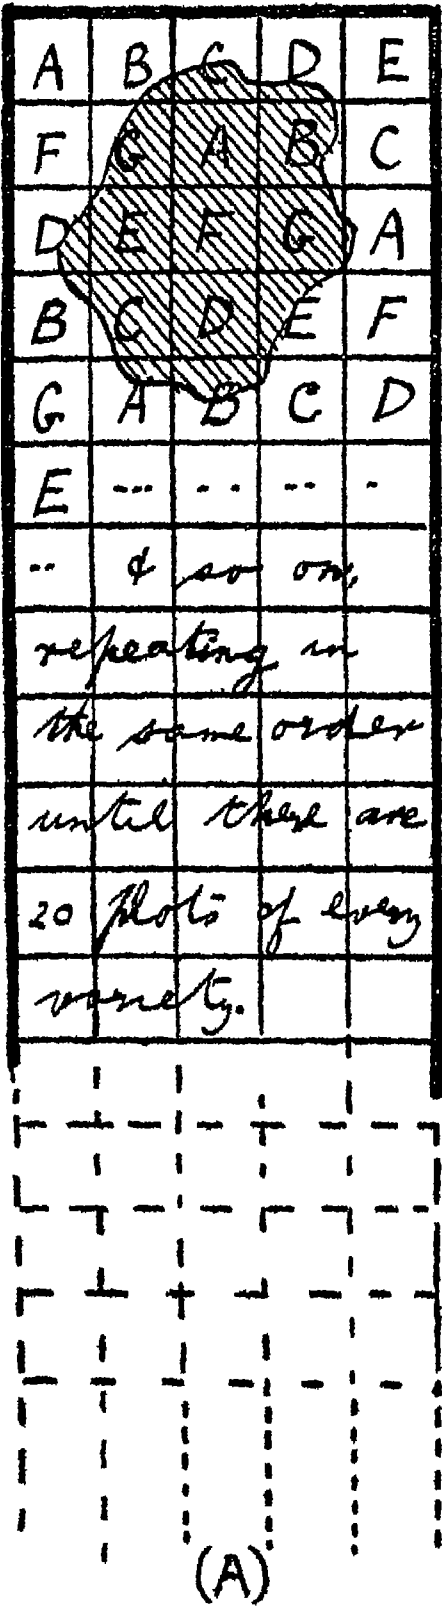 A B C D E
F G A B C
D E F G A
B C D E F
G A B C D
E --- -- -- -
-- & so on,
repeating in
the same order
until there are
20 plots of every
variety.
(A)